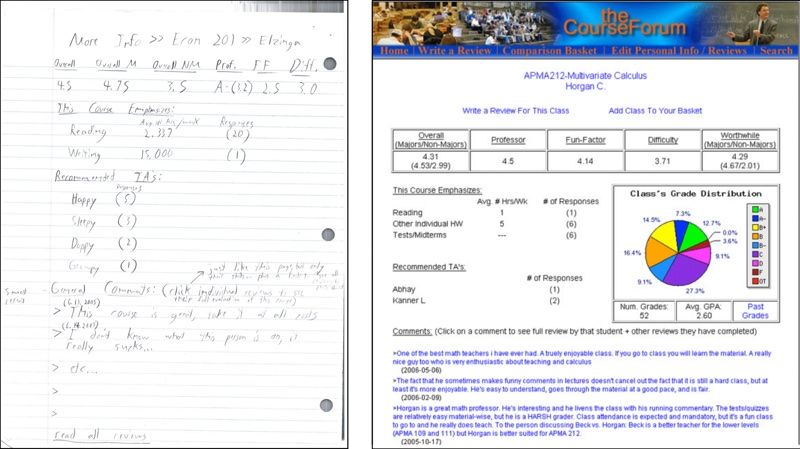 More Info >> Econ 201 >> Elzinga
Overall Overall M Overall NM Prof. FF Diff.
4.5 4.75 3.5 A-(3.2) 2.5 3.0
This Course Emphasizes:
Avg # hrs/week Responses
Reading 2.337 (20)
Writing 15,000 (1)
Recommended TAs:
Responses
Happy (5)
Sleepy (3)
Doppy (2)
Grumpy (1)
just like this page but only
General Comments: (click individual reviews to see
(6.13.2005)
> This course is great, take it at all costs
(6.14.2005)
> I don't know what this person is on, it
really sucks...
> etc...
>
>
read all reviews
the
CourseForum
Home | Write a Review | Comparison Basket | Edit Personal Info / Reviews | Search
APMA212-Multivariate Calculus
Horgan C.
Write a Review For This Class Add Class To Your Basket
Overall (Majors/Non-Majors) Professor Fun-Factor Difficulty Worthwhile (Majors/Non-Majors)
4.31 (4.53/2.99) 4.5 4.14 3.71 4.29 (4.67/2.01)
This Course Emphasizes:
Avg. # Hrs/Wk # of Responses
Reading 1 (1)
Other Individual HW 5 (6)
Tests/Midterms --- (6)
Recommended TA's:
# of Responses
Abhay (1)
Kanner L. (2)
Class's Grade Distribution
14.5% 7.3% 12.7% 0.0% 3.6% 9.1% 27.3% 9.1% 16.4%
A
A-
B+
B
B-
C
D
F
OT
Num. Grades: 52 Avg. GPA: 2.60 Past Grades
Comments: (Click on a comment to see full review by that student + other reviews they have completed)
>One of the best math teachers i have ever had. A truely enjoyable class. If you go to class you will learn the material. A really
nice guy too who is very enthusiastic about teaching and calculus
(2006-05-06)
>The fact that he sometimes makes funny comments in lectures doesn't cancel out the fact that it is still a hard class, but at
least it's more enjoyable. He's easy to understand, goes through the material at a good pace, and is fair.
(2006-02-09)
>Horgan is a great math professor. He's interesting and he livens the class with his running commentary. The tests/quizzes
are relatively easy material-wise, but he is a HARSH grader. Class attendance is expected and mandatory, but it's a fun class
to go to and he really does teach. To the person discussing Beck vs. Horgan: Beck is a better teacher for the lower levels
(APMA 109 and 111) but Horgan is better suited for APMA 212.
(2005-10-17)